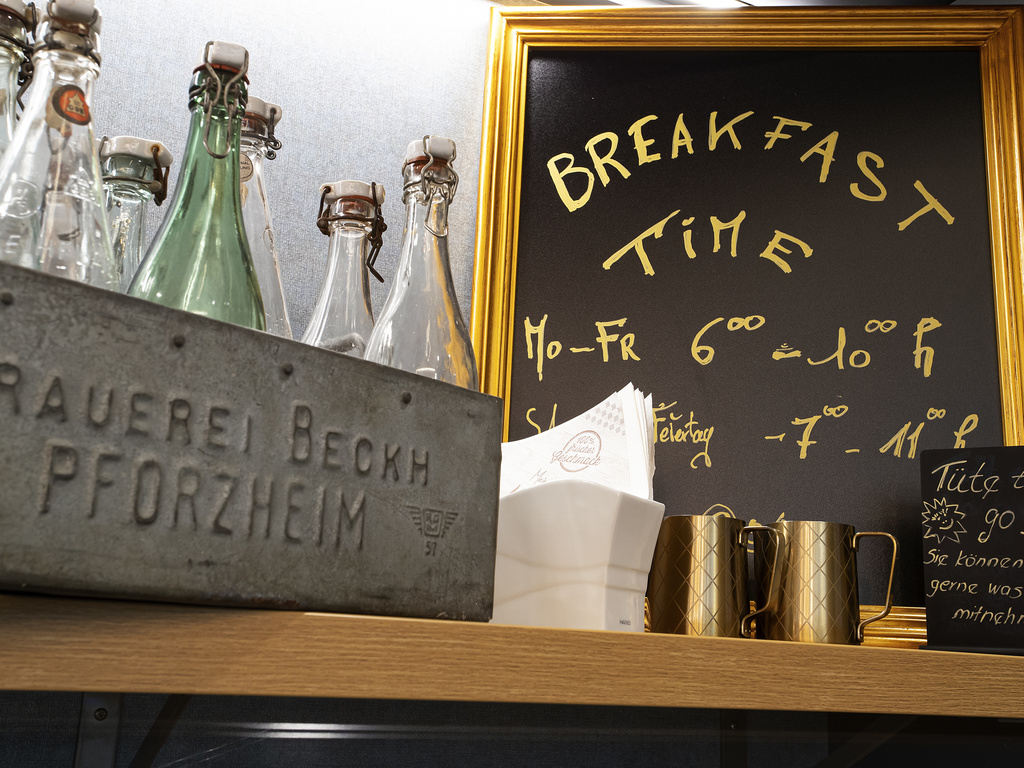 BREAKFAST
TIME
Mo-FR 6⁰⁰ - 10⁰⁰ h
Feiertag - 7⁰⁰ - 11⁰⁰ h
RAUEREI BECKH
PFORZHEIM
57
100%
Geschmack
Tüte t
go
Sie können
gerne was
mitnehm